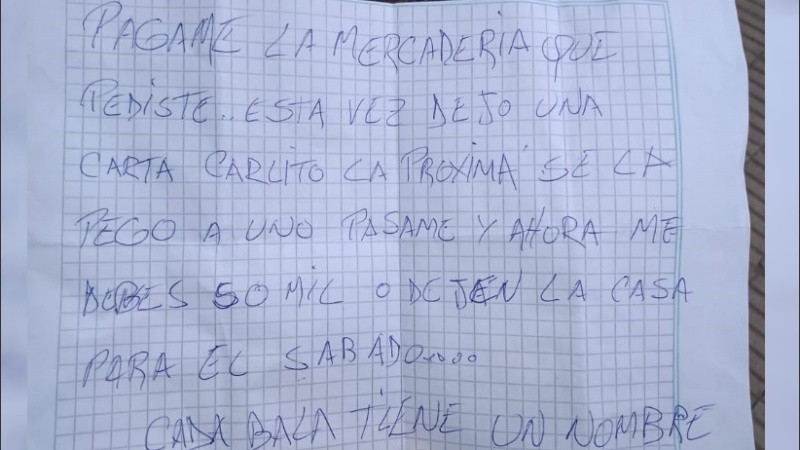 PAGAME LA MERCADERIA QUE
PEDISTE.. ESTA VEZ DEJO UNA
CARTA CARLITO LA PROXIMA SE LA
PEGO A UNO PASAME Y AHORA ME
DEBES 50 MIL O DEJEN LA CASA
PARA EL SABADO.....
CADA BALA TIENE UN NOMBRE